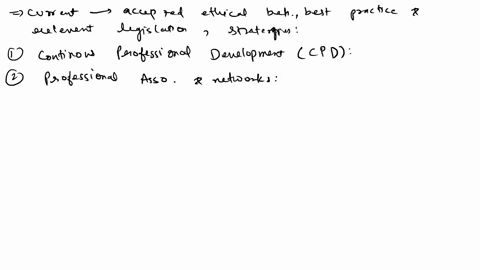 ⇒ Current → accepred ethical beh., best practice &
relevent legislation, strategies:
① Continous Professional Development (CPD):
② Professional Asso. & networks: